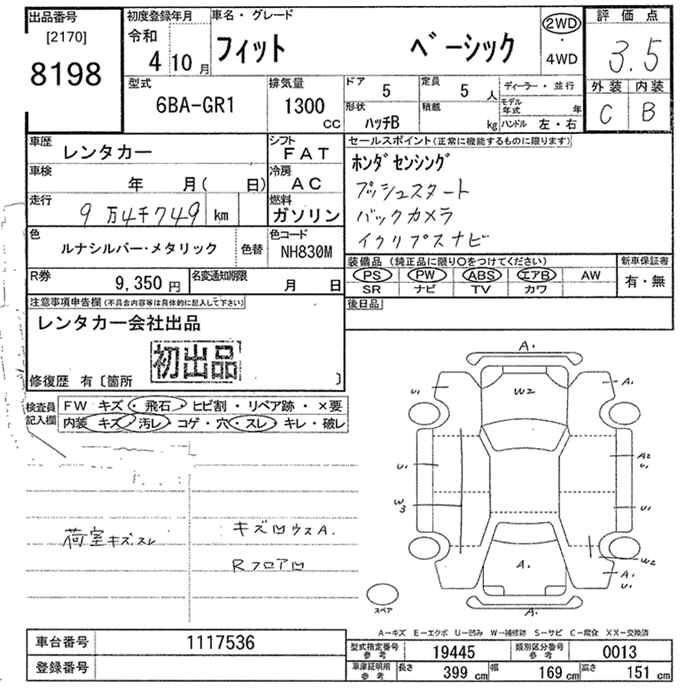 出品番号
[2170]
8198
初度登録年月
令和
4年10月
車名・グレード
フィット ベーシック
2WD
・
4WD
評価点
3.5
外装 内装
C B
型式
6BA-GR1
排気量
1300
cc
ドア
5
定員
5人
ディーラー・並行
形状
ハッチB
積載
kg
モデル年式 年
ハンドル 左・右
車歴
レンタカー
シフト
FAT
車検
年 月( 日)
冷房
AC
走行
9万4千749 km
燃料
ガソリン
色
ルナシルバー・メタリック
色替
色コード
NH830M
R券
9,350円
名変通知期限
月 日
セールスポイント(正常に機能するものに限ります)
ホンダセンシング
プッシュスタート
バックカメラ
イクリプスナビ
装備品(純正品に限り○をつけてください)
PS PW ABS エアB AW
SR ナビ TV カワ
新車保証書
有・無
後日品
注意事項申告欄(不具合内容等は具体的に記入して下さい)
レンタカー会社出品
初出品
修復歴 有〔箇所 〕
検査員記入欄
FW キズ・飛石・ヒビ割・リペア跡・×要
内装 キズ・汚レ・コゲ・穴・スレ・キレ・破レ
荷室キズ.スレ
キズ凹ウスA.
Rフロア凹
A.
U1
W2
A1
U1
A2
U1
W3
U1
W2
A.
A1
U.
A.
スペア
A-キズ E-エクボ U-凹み W-補修跡 S-サビ C-腐食 XX-交換済
車台番号
1117536
登録番号
型式指定番号
参考
19445
類別区分番号
参考
0013
車庫証明用
参考
長さ
399 cm
幅
169 cm
高さ
151 cm